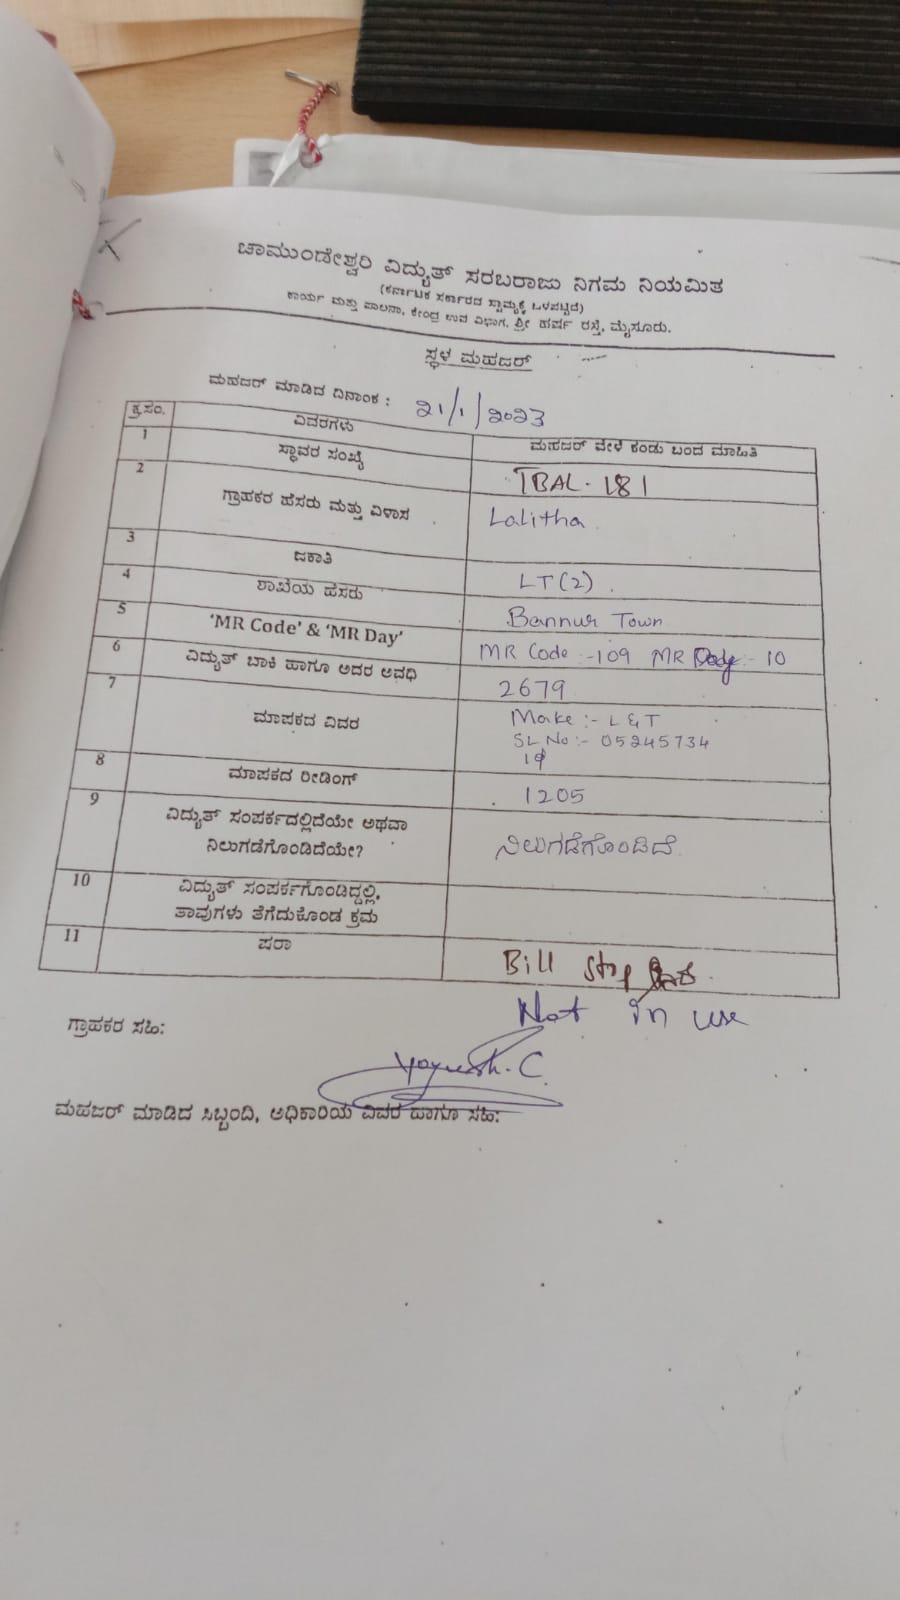 ಚಾಮುಂಡೇಶ್ವರಿ ವಿದ್ಯುತ್ ಸರಬರಾಜು ನಿಗಮ ನಿಯಮಿತ
(ಕರ್ನಾಟಕ ಸರ್ಕಾರದ ಸ್ವಾಮ್ಯಕ್ಕೆ ಒಳಪಟ್ಟಿದೆ)
ಕಾರ್ಯ ಮತ್ತು ಪಾಲನಾ, ಕೇಂದ್ರ ಉಪ ವಿಭಾಗ, ಶ್ರೀ ಹರ್ಷ ರಸ್ತೆ, ಮೈಸೂರು.
ಸ್ಥಳ ಮಹಜರ್
ಮಹಜರ್ ಮಾಡಿದ ದಿನಾಂಕ : ೨೧/೧/೨೦೨೩
ಕ್ರ.ಸಂ. ವಿವರಗಳು ಮಹಜರ್ ವೇಳೆ ಕಂಡು ಬಂದ ಮಾಹಿತಿ
1 ಸ್ಥಾವರ ಸಂಖ್ಯೆ TBAL-181
2 ಗ್ರಾಹಕರ ಹೆಸರು ಮತ್ತು ವಿಳಾಸ Lalitha
3 ಜಕಾತಿ LT(2)
4 ಶಾಖೆಯ ಹೆಸರು Bannur Town
5 'MR Code' & 'MR Day' MR Code :-109 MR Day :-10
6 ವಿದ್ಯುತ್ ಬಾಕಿ ಹಾಗೂ ಅದರ ಅವಧಿ 2679
7 ಮಾಪಕದ ವಿವರ Make :- L&T
SL No :- 05245734
1φ
8 ಮಾಪಕದ ರೀಡಿಂಗ್ 1205
9 ವಿದ್ಯುತ್ ಸಂಪರ್ಕದಲ್ಲಿದೆಯೇ ಅಥವಾ
ನಿಲುಗಡೆಗೊಂಡಿದೆಯೇ? ನಿಲುಗಡೆಗೊಂಡಿದೆ
10 ವಿದ್ಯುತ್ ಸಂಪರ್ಕಗೊಂಡಿದ್ದಲ್ಲಿ,
ತಾವುಗಳು ತೆಗೆದುಕೊಂಡ ಕ್ರಮ
11 ಷರಾ Bill stop
Not in use
ಗ್ರಾಹಕರ ಸಹಿ:
Yogeesh.C
ಮಹಜರ್ ಮಾಡಿದ ಸಿಬ್ಬಂದಿ, ಅಧಿಕಾರಿಯ ವಿವರ ಹಾಗೂ ಸಹಿ: